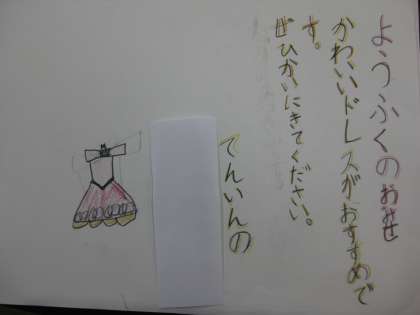 ようふくのおみせ
かわいいドレスがおすすめで
す。
ぜひかいにきてください。
てんいんの